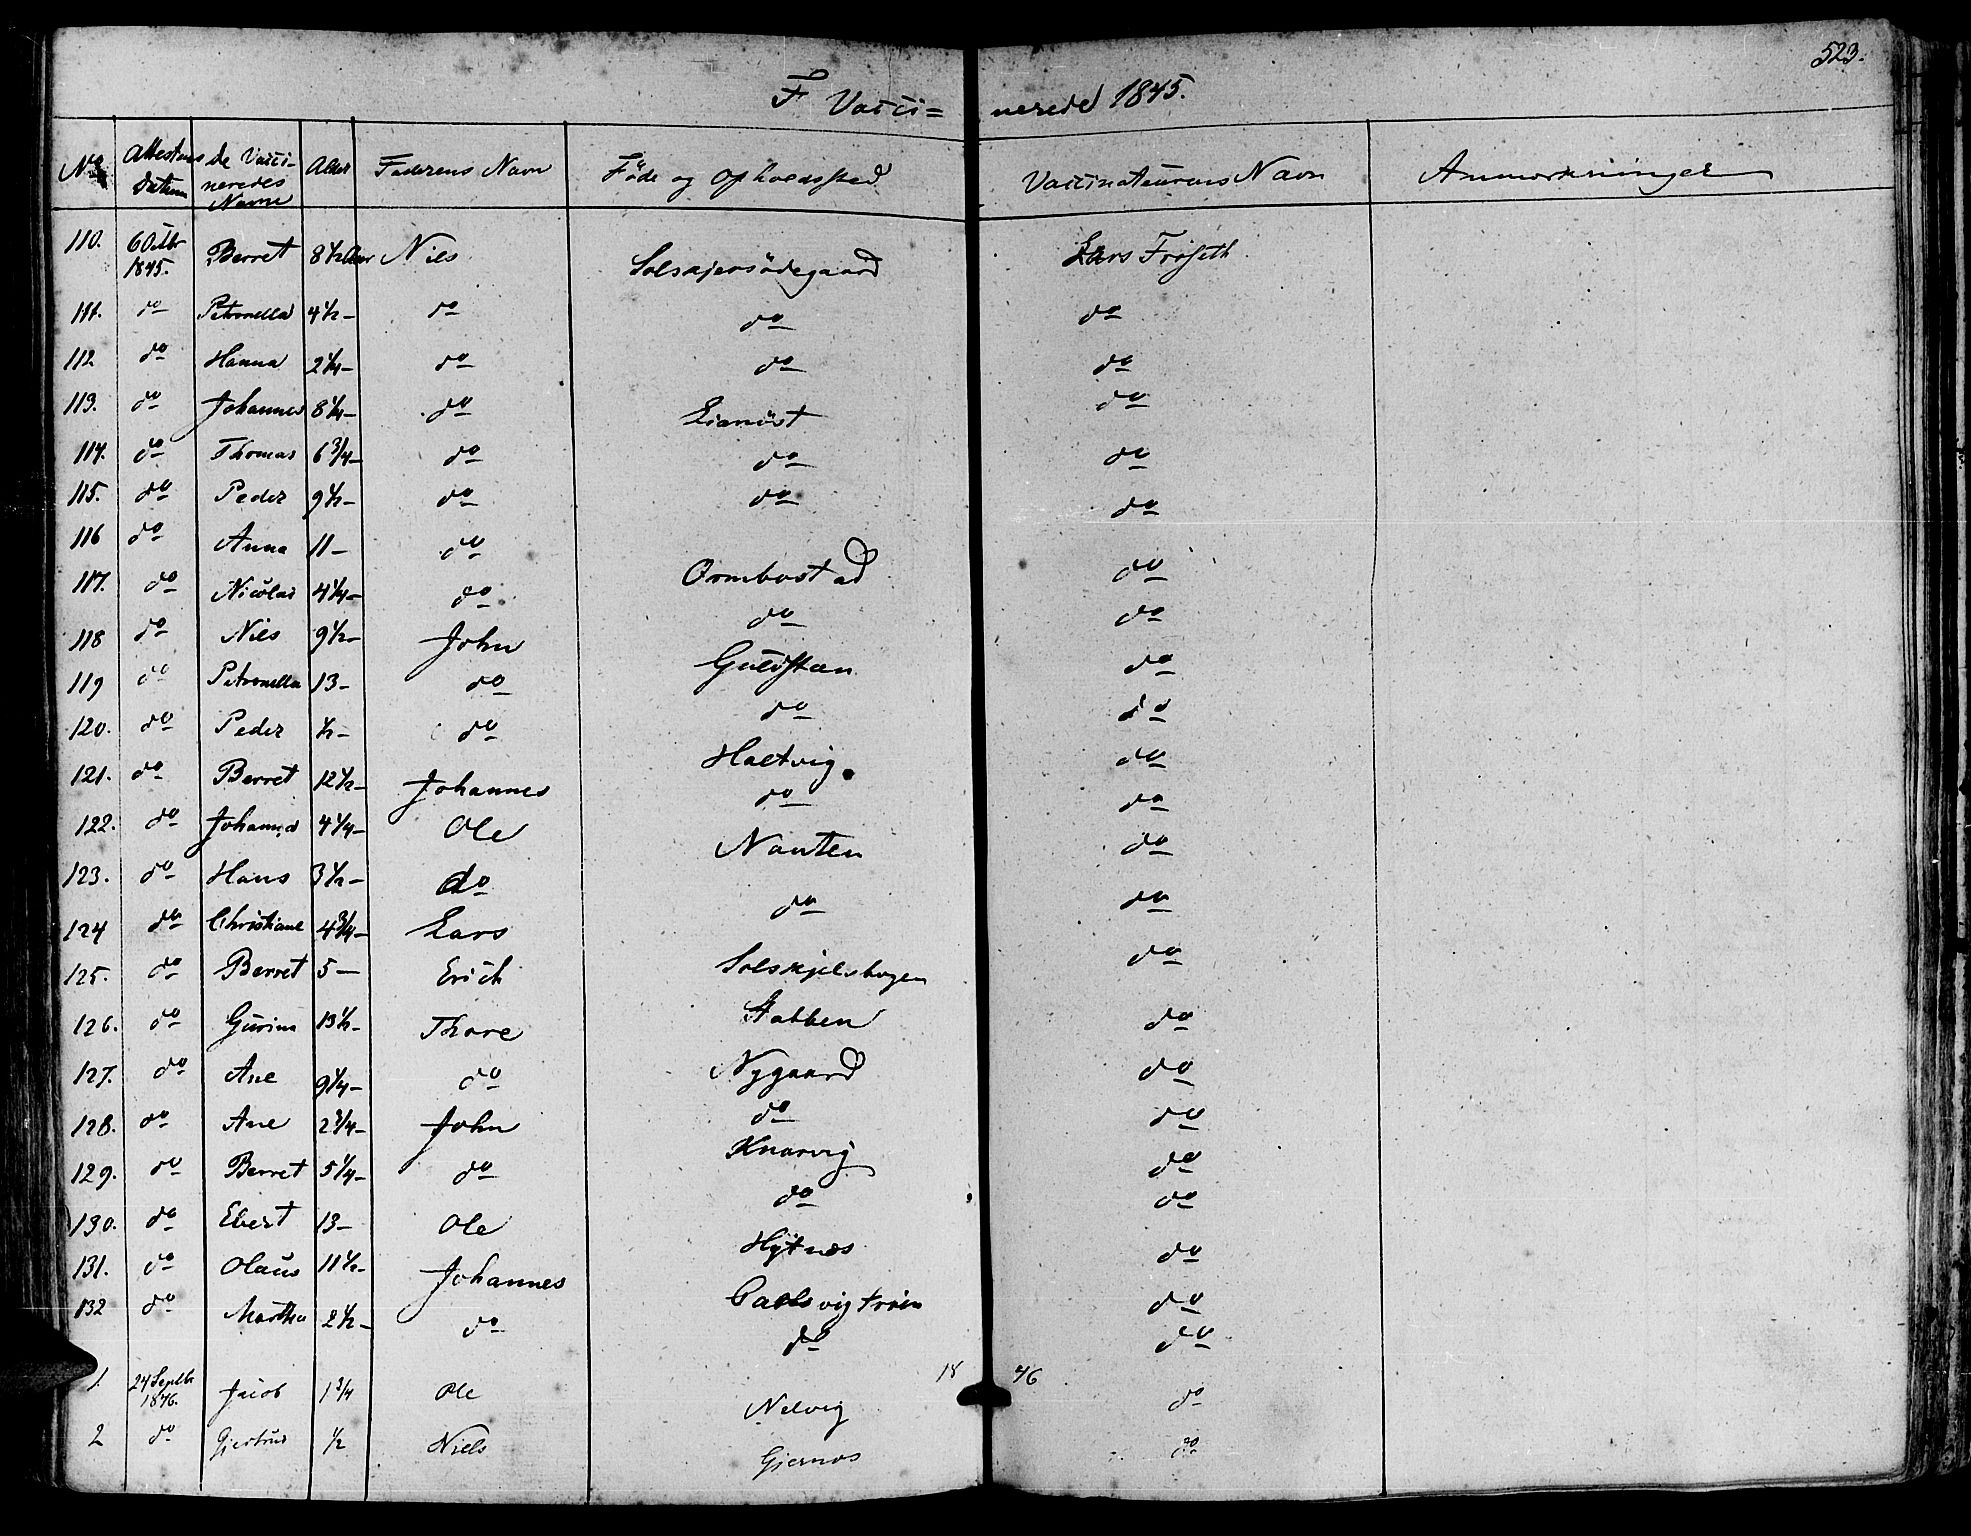 523.
F Vacci= nerede 1845.
No Attestens Datum de Vacci-neredes Navne Alder Faderens Navn Föde og Opholdssted Vaccinateurens Navn Anmærkninger
110. 6 Octbr 1845. Berret 8 1/2 Aar Nils Solskjersödegaard Lars Fröseth
111. do Petronella 4 1/2 - do do do
112 do Hanna 2 1/4 - do do do
113. do Johannes 8 1/4 - do Lianöst do
114. do Thomas 6 3/4 - do do do
115. do Peder 9 1/2 - do do do
116 do Anna 11 - do Ormbostad do
117. do Nicolai 4 1/4 - do do do
118 do Nils 9 1/2 - John Guldsten do
119 do Petronella 13 - do do do
120. do Peder 1/2 - do Holtvig do
121. do Berret 12 1/2 - Johannes do do
122. do Johanna 4 1/4 - Ole Nauten do
123. do Hans 3 1/2 - do do do
124 do Christiane 4 3/4 - Lars Solskjelshagen do
125. do Berret 5 - Erich Stabben do
126. do Gurina 13 1/2 - Thore Nygaard do
127. do Ane 9 1/4 - do do do
128. do Ane 2 3/4 - John Knarvig do
129. do Berret 5 1/4 - do do do
130. do Ebert 13 - Ole Hijtnes do
131. do Olaus 11 1/2 - Johannes do
132 do Martha 2 1/2 - do do do
18 46
1. 24 Septbr 1846. Jacob 1 3/4 Ole Nelvig do
2 do Gjertrud 1/2 Niels Gjernes do